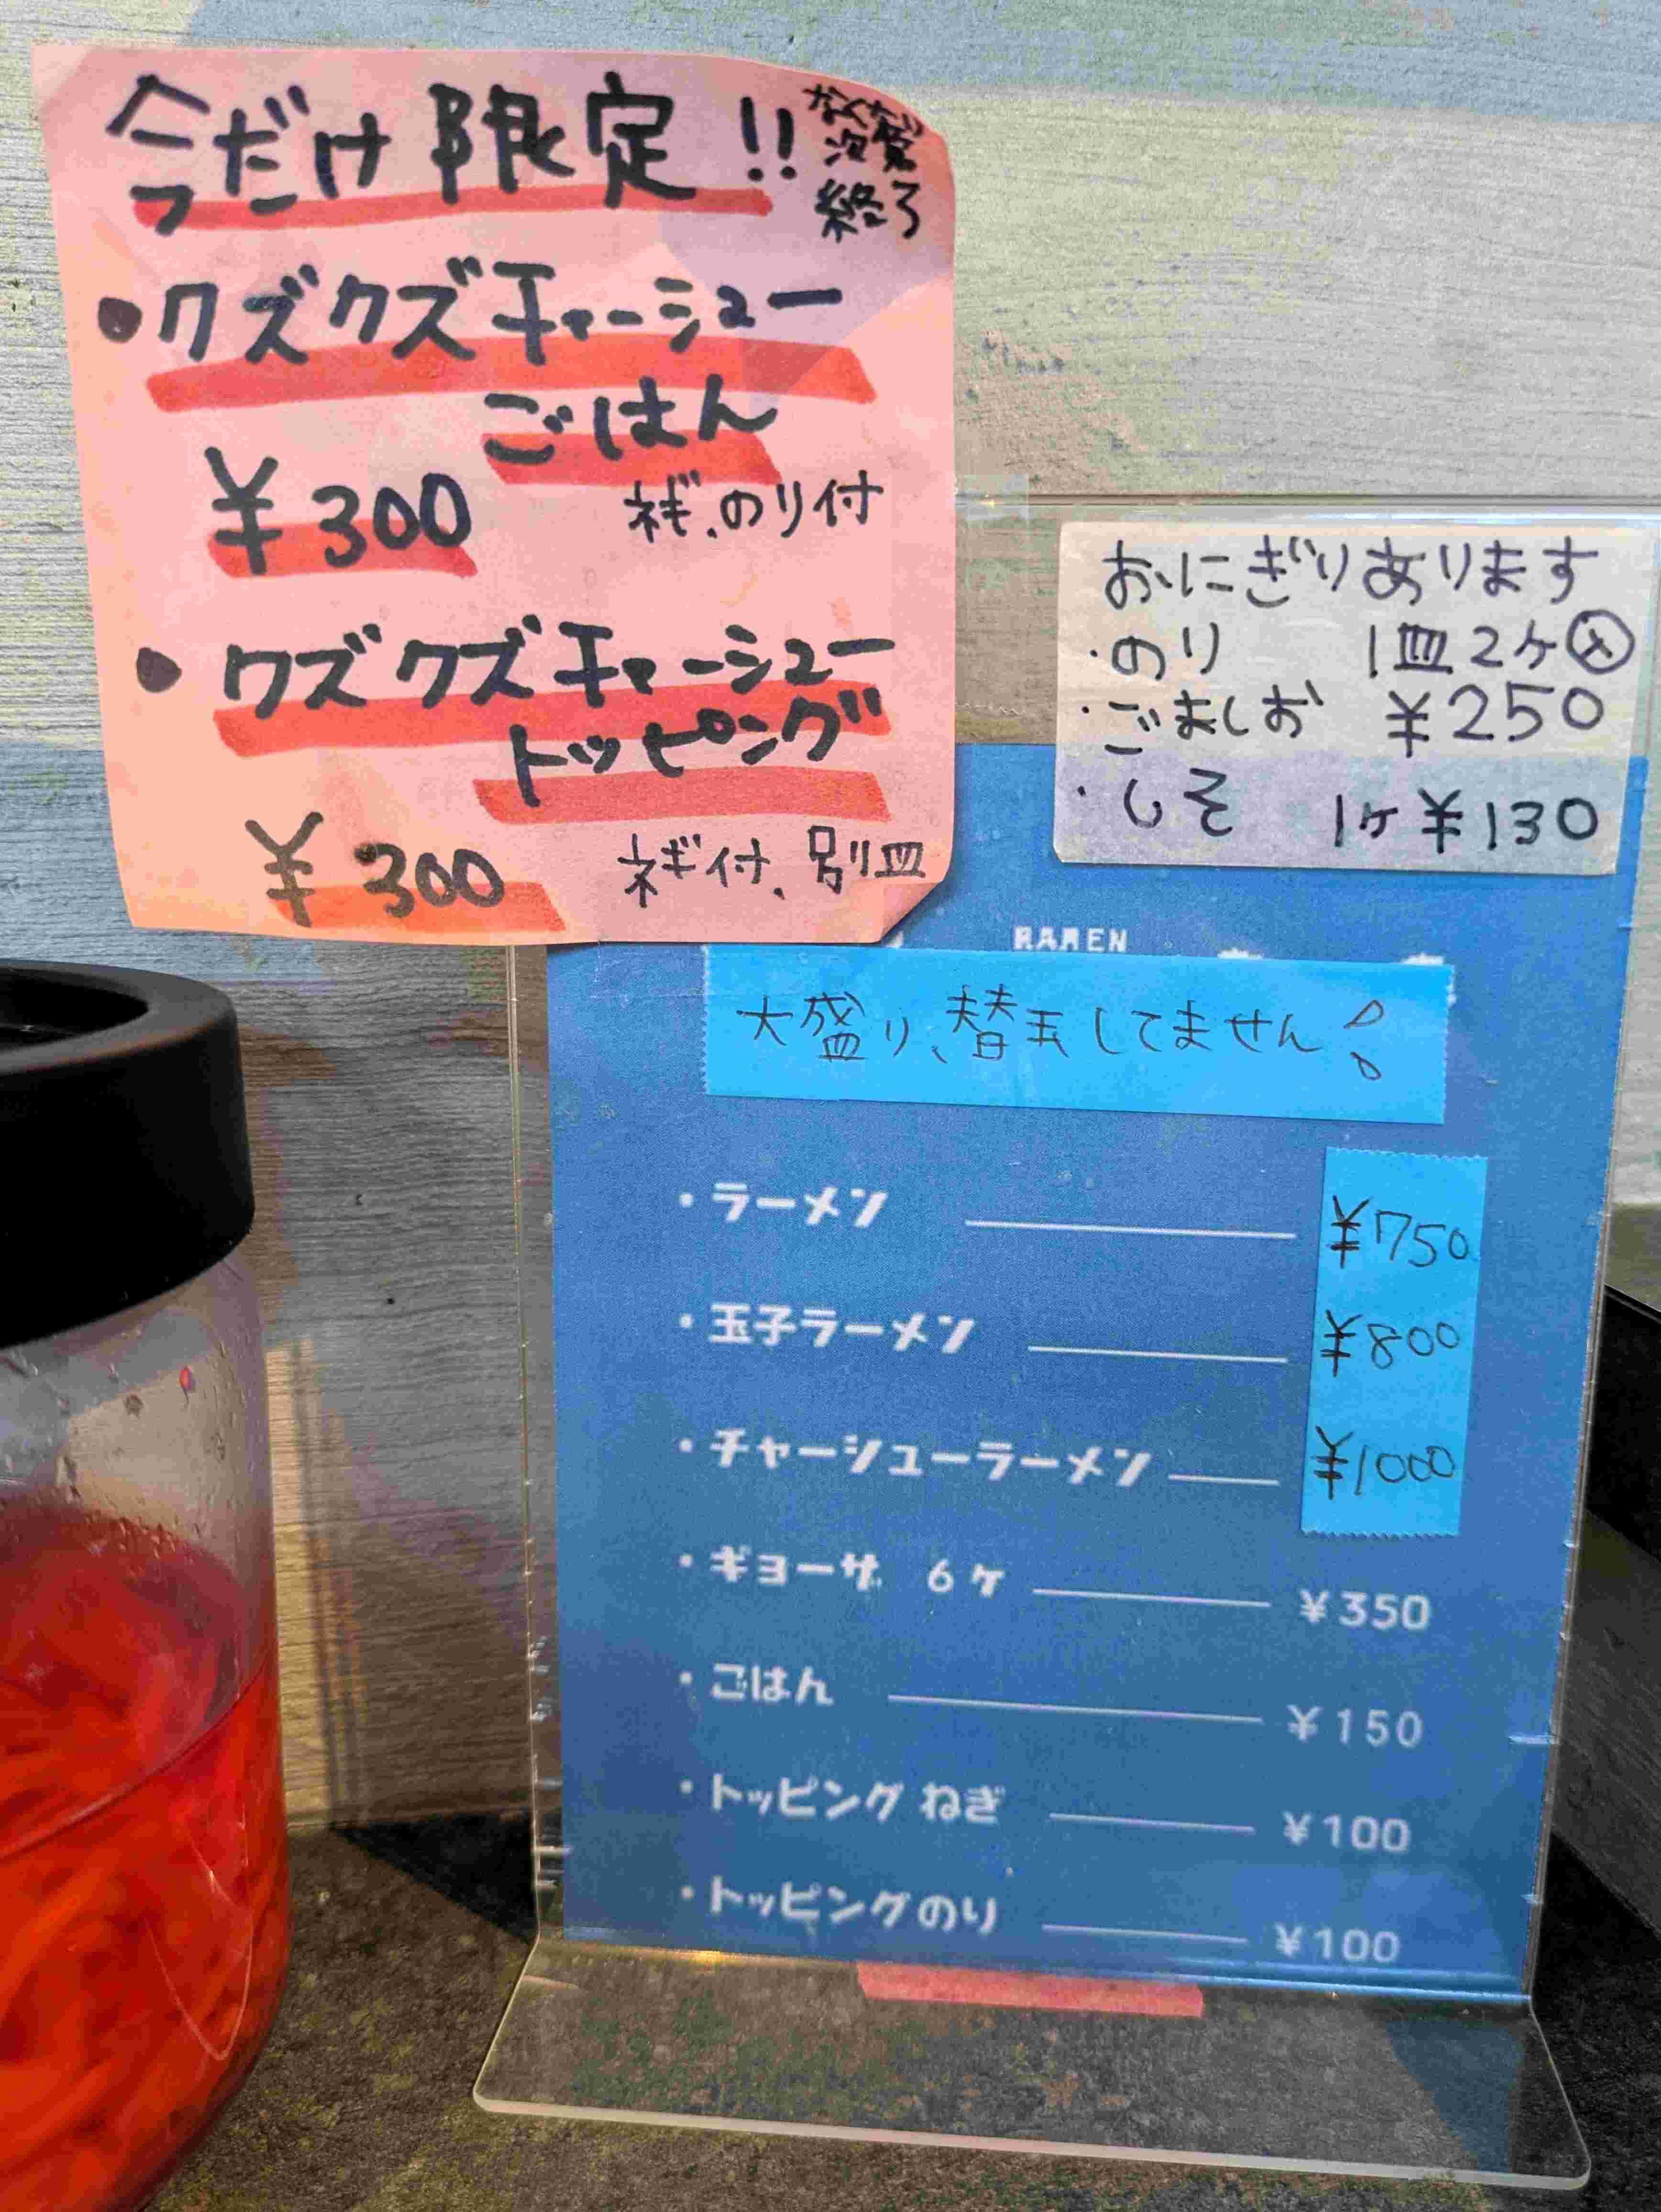 今だけ限定!!
なくなり
次第
終了
・クズクズチャーシュー
ごはん
¥300 ネギ、のり付
・クズクズチャーシュー
トッピング
¥300 ネギ付、別皿
おにぎりあります
・のり 1皿2ケ入
・ごましお ¥250
・しそ 1ケ¥130
RAMEN
大盛り、替玉してません
・ラーメン ¥750
・玉子ラーメン ¥800
・チャーシューラーメン ¥1000
・ギョーザ 6ケ ¥350
・ごはん ¥150
・トッピング ねぎ ¥100
・トッピングのり ¥100